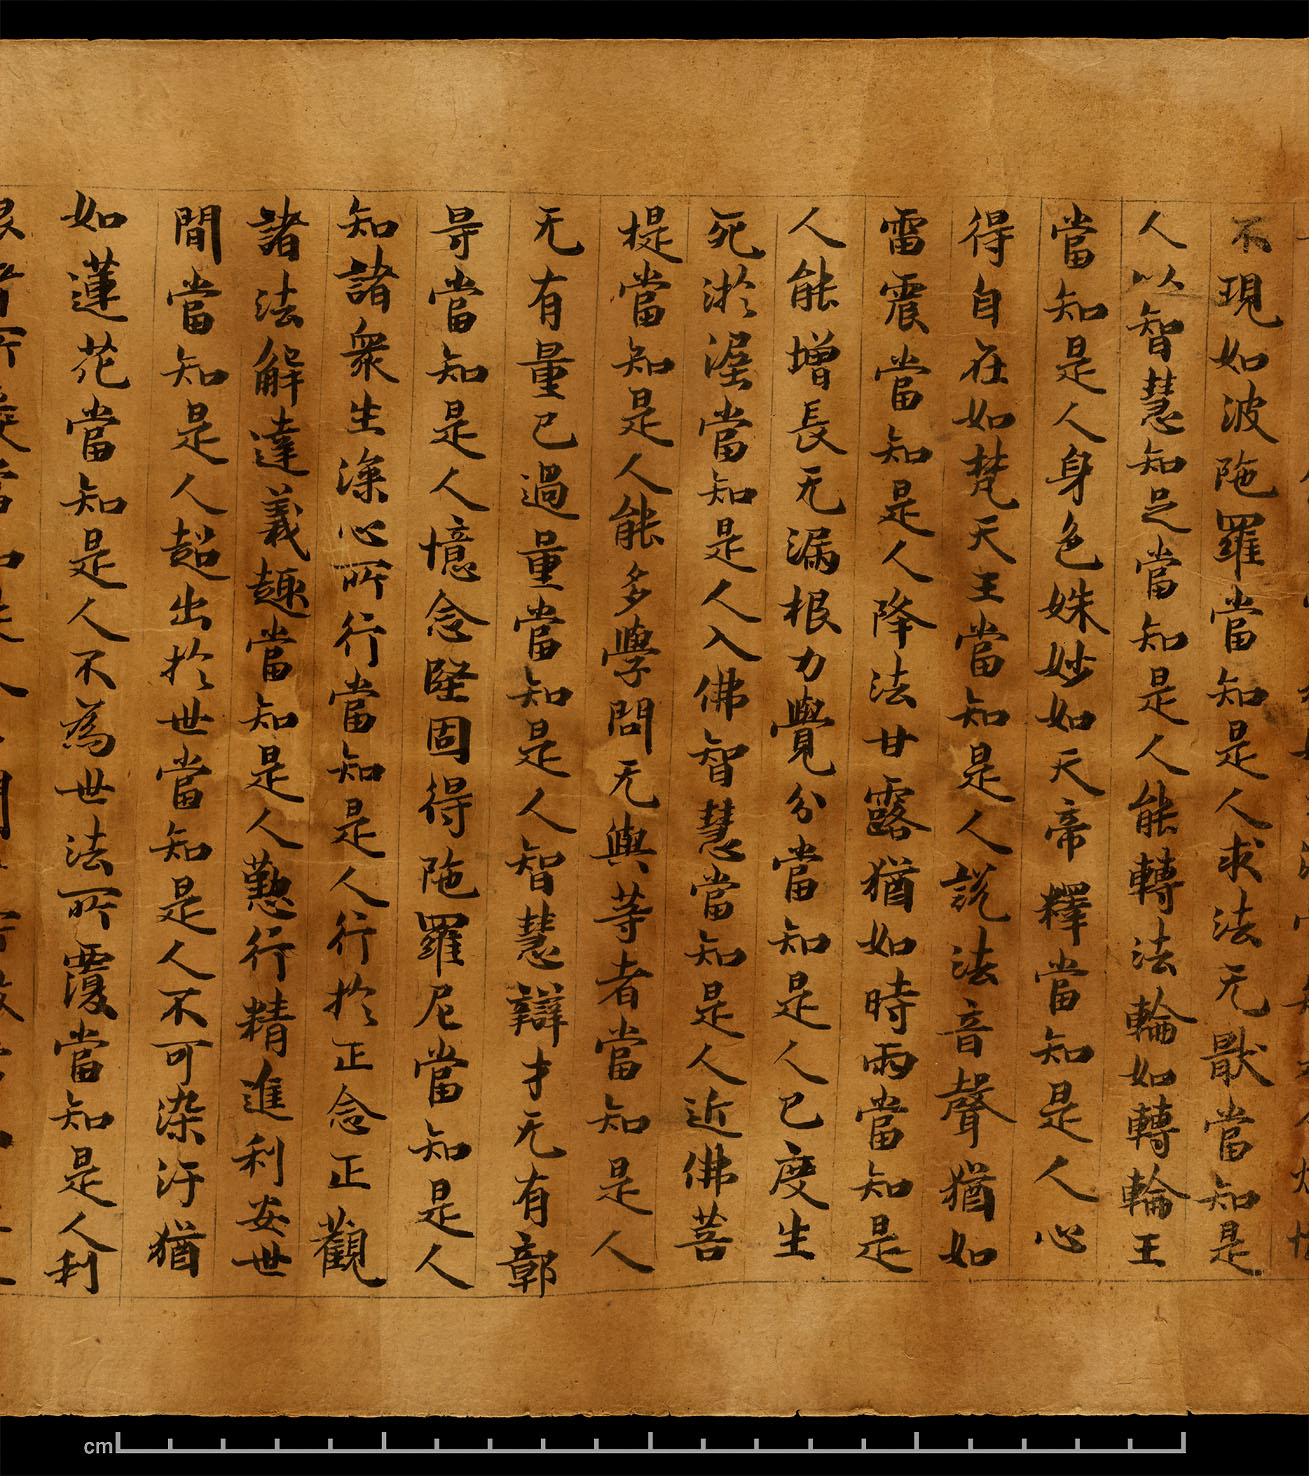 不現如波陁羅當知是人求法无猒當知是
人以智慧知足當知是人能轉法輪如轉輪王
當知是人身色姝妙如天帝釋當知是人心
得自在如梵天王當知是人說法音聲猶如
雷震當知是人降法甘露猶如時雨當知是
人能增長无漏根力覺分當知是人已度生
死淤涅當知是人入佛智慧當知是人近佛菩
提當知是人能多學問无與等者當知是人
无有量已過量當知是人智慧辯才无有鄣
㝵當知是人憶念堅固得陁羅尼當知是人
知諸衆生深心所行當知是人行於正念正觀
諸法解達義趣當知是人懃行精進利安世
間當知是人超出於世當知是人不可染汙猶
如蓮花當知是人不為世法所覆當知是人利
cm